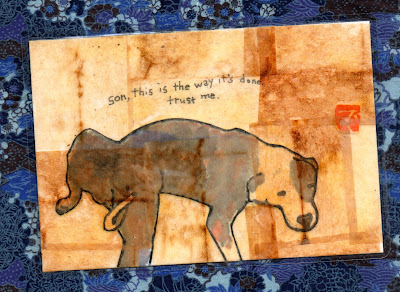 son, this is the way it's done.
trust me.